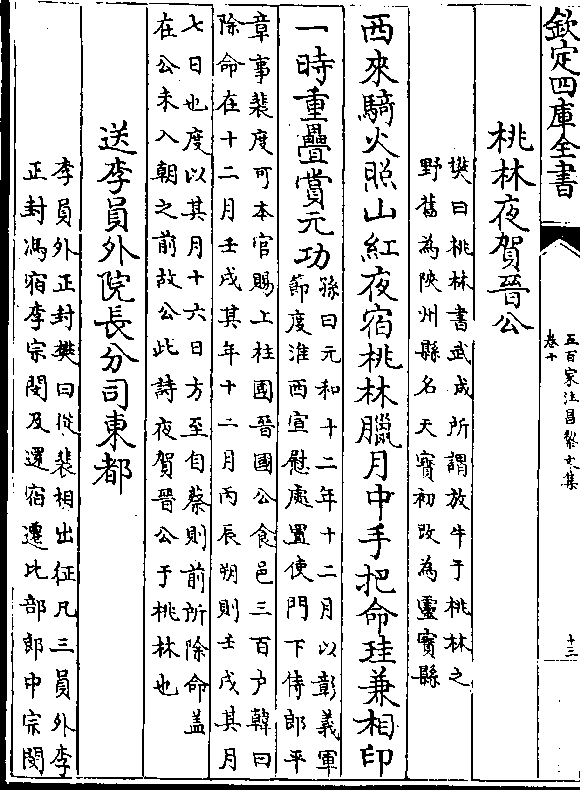 欽定四庫全書
五百家注昌黎文集
卷十
十三
桃林夜賀晉公
樊曰桃林書武成所謂放牛于桃林之
野舊為陜州縣名天寶初改為靈寶縣
西來騎火照山紅夜宿桃林臘月中手把命珪兼相印
一時重疊賞元功
孫曰元和十二年十二月以彰義軍
節度淮西宣慰處置使門下侍郎平
章事裴度可本官賜上柱國晉國公食邑三百户韓曰
除命在十二月壬戌其年十二月丙辰朔則壬戌其月
七日也度以其月十六日方至自蔡則前所除命盖
在公未入朝之前故公此詩夜賀晉公于桃林也
送李員外院長分司東都
李員外正封樊曰從裴相出征凡三員外李
正封馮宿李宗閔及還宿遷比部郎中宗閔